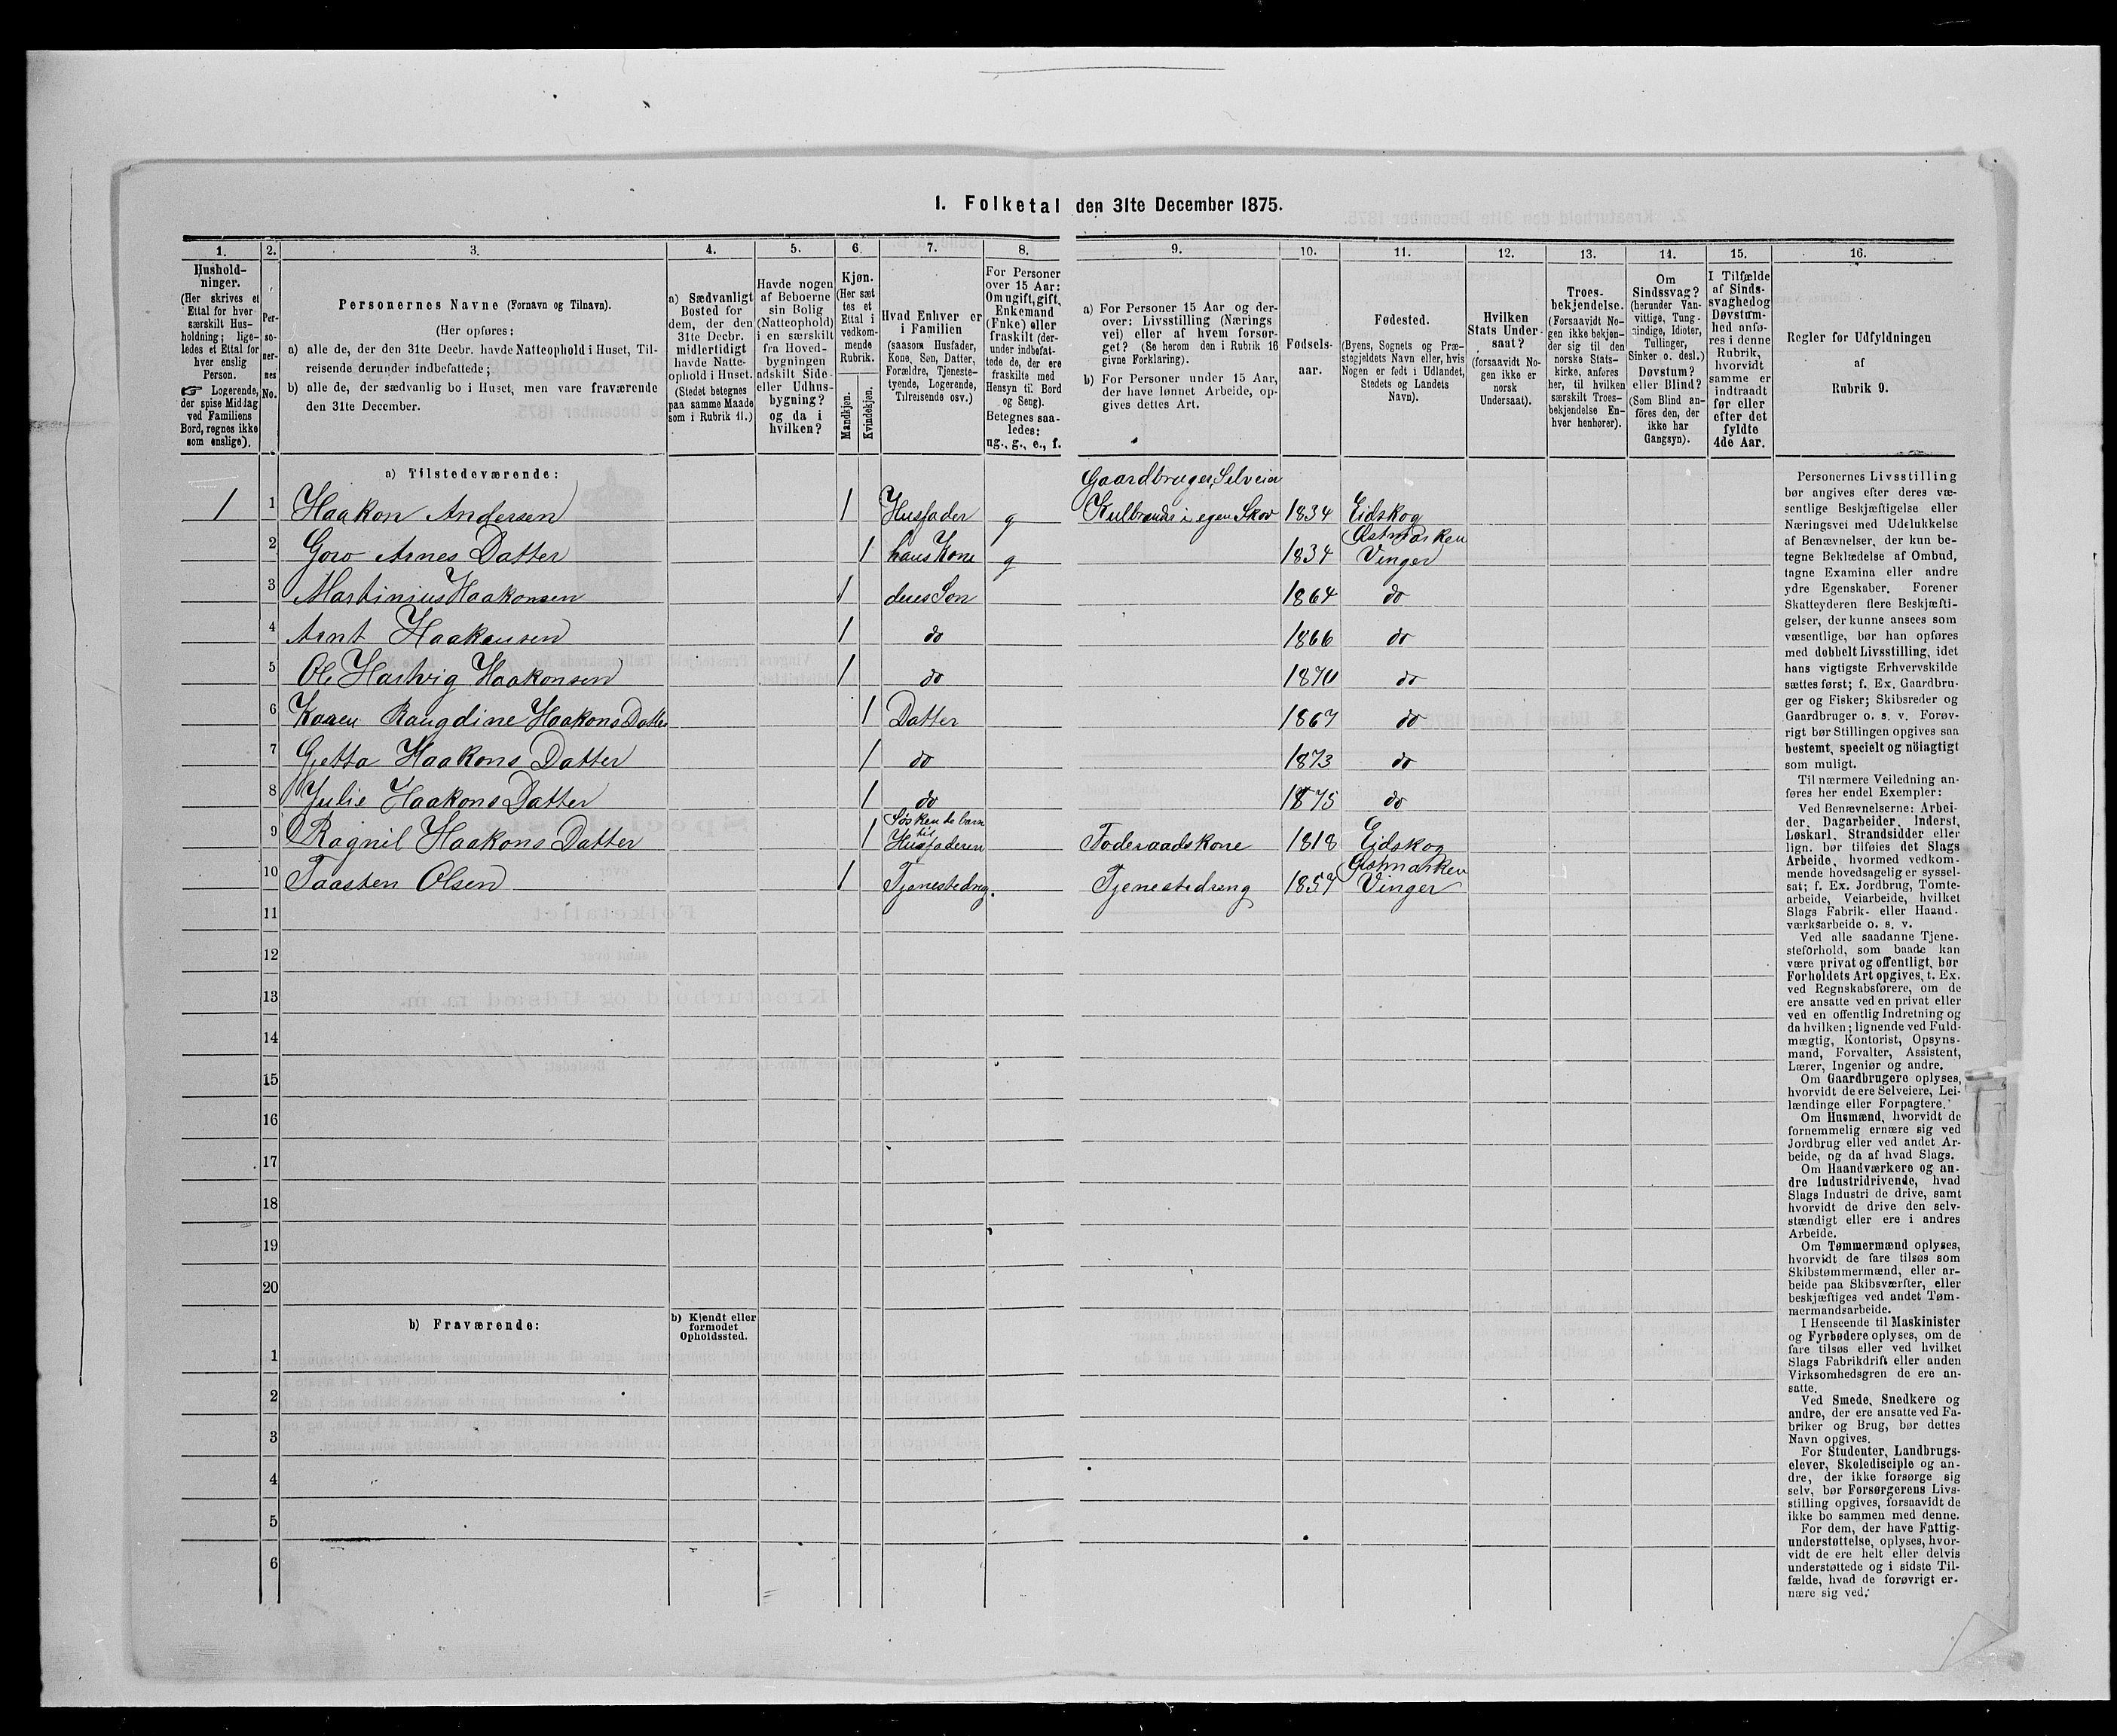 1. Folketal den 31te December 1875.
1.
Hushold-
ninger.
(Her skrives et
Ettal for hver
særskilt Hus-
holdning; lige-
ledes et Ettal for
hver enslig
Person.
☞ Logerende,
der spise Middag
ved Familiens
Bord, regnes ikke
som enslige).
2.
Per-
so-
ner-
nes
No.
3.
Personernes Navne (Fornavn og Tilnavn).
(Her opføres:
a) alle de, der den 31te Decbr. havde Natteophold i Huset, Til-
reisende derunder indbefattede;
b) alle de, der sædvanlig bo i Huset, men vare fraværende
den 31te December.
4.
a) Sædvanligt
Bosted for
dem, der den
31te Decbr.
midlertidigt
havde Natte-
ophold i Huset.
(Stedet betegnes
paa samme Maade
som i Rubrik 11.)
5.
Havde nogen
af Beboerne
sin Bolig
(Natteophold)
i en særskilt
fra Hoved-
bygningen
adskilt Side-
eller Udhus-
bygning?
og da i
hvilken?
6.
Kjøn.
(Her sæt
tes et
Ettal i
vedkom-
mende
Rubrik.
Mandkjøn.
Kvindekjøn.
7.
Hvad Enhver er
i Familien
(saasom Husfader,
Kone, Søn, Datter,
Forældre, Tjeneste-
tyende, Logerende,
Tilreisende osv.)
8.
For Personer
over 15 Aar:
Om ugift, gift,
Enkemand
(Enke) eller
fraskilt (der-
under indbefat-
tede de, der ere
fraskilte med
Hensyn til Bord
og Seng).
Betegnes saa-
ledes:
ug., g., e., f.
9.
a) For Personer 15 Aar og der-
over: Livsstilling (Nærings
vei) eller af hvem forsør-
get? (Se herom den i Rubrik 16
givne Forklaring).
b) For Personer under 15 Aar,
der have lønnet Arbeide, op-
gives dettes Art.
10.
Fødsels-
aar.
11.
Fødested.
(Byens, Sognets og Præ-
stegjeldets Navn eller, hvis
Nogen er født i Udlandet,
Stedets og Landets
Navn).
12.
Hvilken
Stats Under-
saat?
(forsaavidt No-
gen ikke er
norsk
Undersaat).
13.
Troes-
bekjendelse.
(Forsaavidt No-
gen ikke bekjen-
der sig til den
norske Stats-
kirke, anføres
her, til hvilken
særskilt Troes-
bekjendelse En-
hver henhører).
14.
Om
Sindssvag?
(herunder Van-
vittige, Tung-
sindige, Idioter,
Tullinger,
Sinker o. desl.)
Døvstum?
eller Blind?
(Som Blind an-
føres den, der
ikke har
Gangsyn).
15.
I Tilfælde
af Sinds-
svaghed og
Døvstum-
hed anfø-
res i denne
Rubrik,
hvorvidt
samme er
indtraadt
før eller
efter det
fyldte
4de Aar.
16.
Regler for Udfyldningen
af
Rubrik 9.
a) Tilstedeværende:
1 1 Haakon Andersen 1 Husfader g Gaardbruger, Selveier Kulbrænder i egen Skov 1834 Eidskog
2 Goro Arnes Datter 1 hans Kone g 1834 Østmarken Vinger
3 Martinius Haakonsen 1 deres Søn 1864 do
4 Arnt Haakensen 1 do 1866 do
5 Ole Hartvig Haakonsen 1 do 1870 do
6 Karen Raugdine Haakons Datter 1 Datter 1867 do
7 Getta Haakons Datter 1 do 1873 do
8 Julie Haakons Datter 1 do 1875 do
9 Ragnil Haakons Datter 1 Søskendebarn til Husfaderen Foderaadskone 1818 Eidskog
10 Taasten Olsen 1 Tjenestedreg. Tjenestedreng 1857 Østmarken Vinger
11
12
13
14
15
16
17
18
19
20
b) Fraværende:
b) Kjendt eller
formodet
Opholdssted.
1
2
3
4
5
6
Personernes Livsstilling
bør angives efter deres væ-
sentlige Beskjæftigelse eller
Næringsvei med Udelukkelse
af Benævnelser, der kun be-
tegne Beklædelse af Ombud,
tagne Examina eller andre
ydre Egenskaber. Forener
Skatteyderen flere Beskjæfti-
gelser, der kunne ansees som
væsentlige, bør han opføres
med dobbelt Livsstilling, idet
hans vigtigste Erhvervskilde
sættes først; f. Ex. Gaardbru-
ger og Fisker; Skibsreder og
Gaardbruger o. s. v. Forøv-
rigt bør Stillingen opgives saa
bestemt, specielt og nöiagtigt
som muligt.
Til nærmere Veiledning an-
føres her endel Exempler:
Ved Benævnelserne: Arbei-
der, Dagarbeider, Inderst,
Løskarl, Strandsidder eller
lign. bør tilføies det Slags
Arbeide, hvormed vedkom-
mende hovedsagelig er syssel-
sat; f. Ex. Jordbrug, Tomte-
arbeide, Veiarbeide, hvilket
Slags Fabrik- eller Haand-
værksarbeide o. s. v.
Ved alle saadanne Tjene-
steforhold, som baade kan
være privat og offentligt, bør
Forholdets Art opgives, t. Ex.
ved Regnskabsførere, om de
ere ansatte ved en privat eller
ved en offentlig Indretning og
da hvilken; lignende ved Fuld-
mægtig, Kontorist, Opsyns-
mand, Forvalter, Assistent,
Lærer, Ingeniør og andre.
Om Gaardbrugere oplyses,
hvorvidt de ere Selveiere, Lei-
lændinge eller Forpagtere.
Om Husmænd, hvorvidt de
fornemmelig ernære sig ved
Jordbrug eller ved andet Ar-
beide, og da af hvad Slags.
Om Haandværkere og an-
dre Industridrivende, hvad
Slags Industri de drive, samt
hvorvidt de drive den selv-
stændigt eller ere i andres
Arbeide.
Om Tømmermænd oplyses,
hvorvidt de fare tilsøs som
Skibstømmermænd, eller ar-
beide paa Skibsværfter, eller
beskjæftiges ved andet Tøm-
mermandsarbeide.
I Henseende til Maskinister
og Fyrbødere oplyses, om de
fare tilsøs eller ved hvilket
Slags Fabrikdrift eller anden
Virksomhedsgren de ere an-
satte.
Ved Smede, Snedkere og
andre, der ere ansatte ved Fa-
briker og Brug, bør dettes
Navn opgives.
For Studenter, Landbrugs-
elever, Skoledisciple og an-
dre, der ikke forsørge sig
selv, bør Forsørgerens Livs-
stilling opgives, forsaavidt de
ikke bo sammen med denne.
For dem, der have Fattig-
understøttelse, oplyses, hvor-
vidt de ere helt eller delvis
understøttede og i sidste Til-
fælde, hvad de forøvrigt er-
nære sig ved.